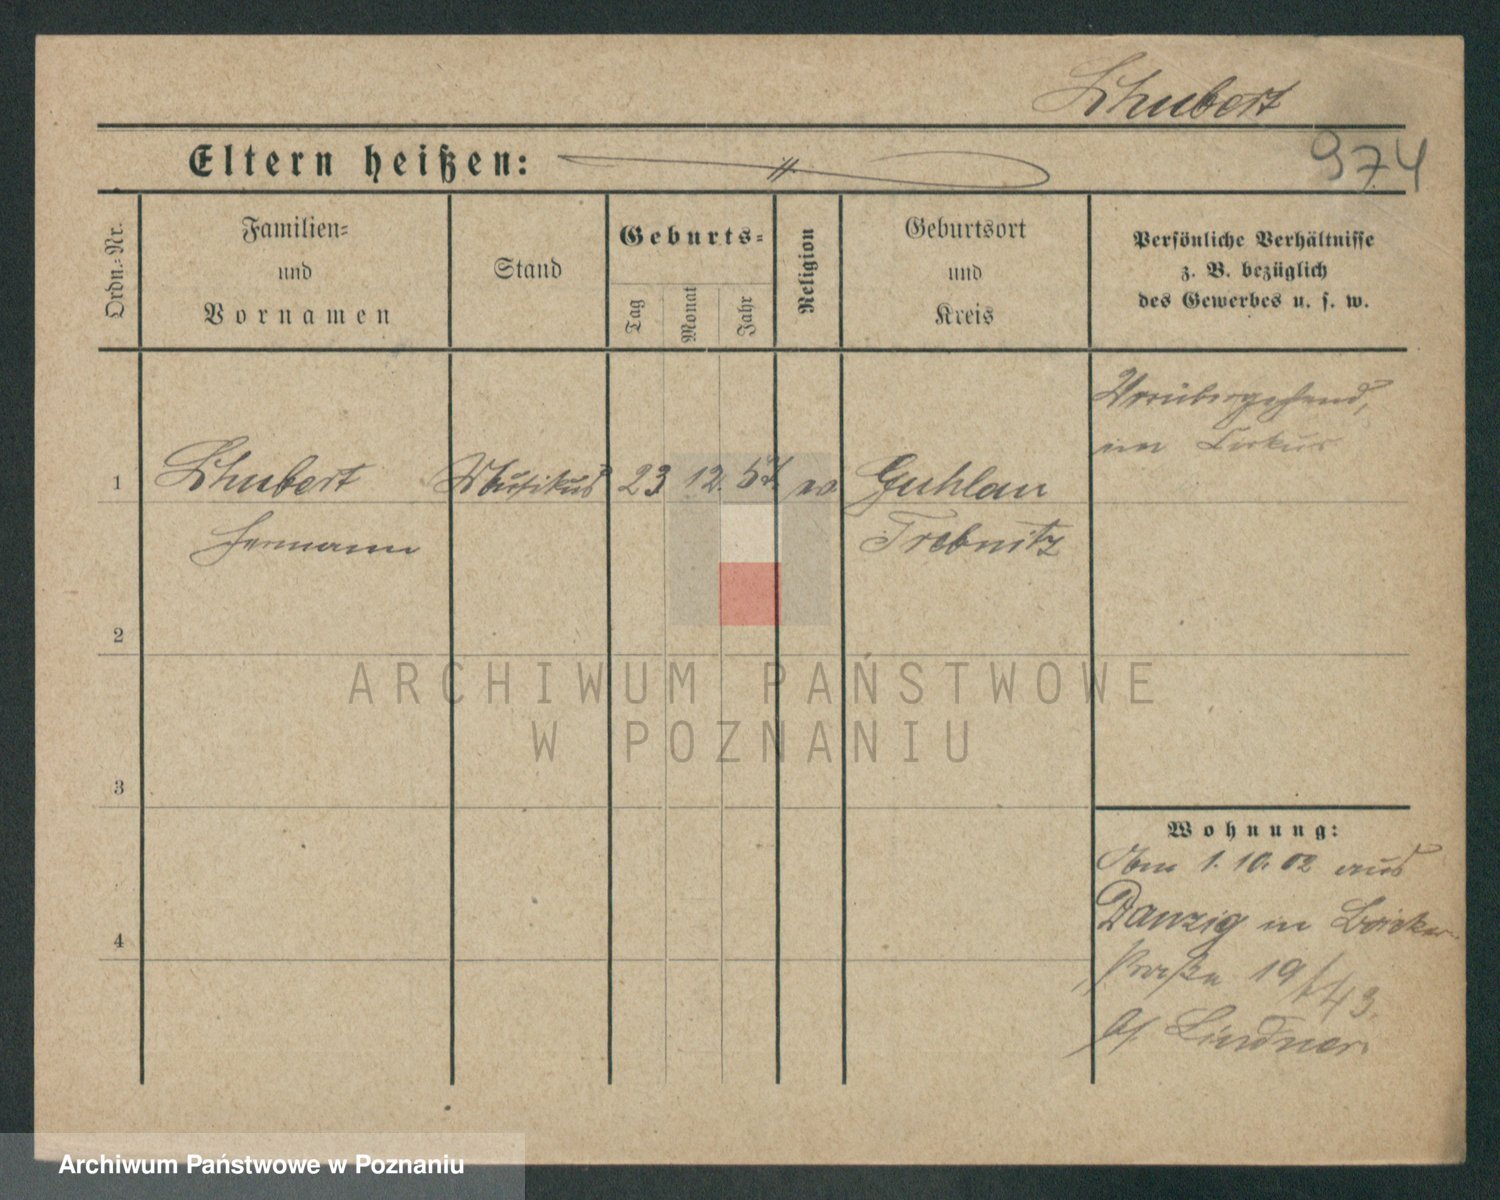 Schubert
Eltern heißen:
974
Ordn.-Nr.
Familien-
und
Vornamen
Stand
Geburts-
Tag
Monat
Jahr
Religion
Geburtsort
und
Kreis
Persönliche Verhältnisse
z. B. bezüglich
des Gewerbes u. s. w.
Vorübergehend,
im Cirkus
1 Schubert Musikus 23 12. 57. ev Guhlau
Hermann Trebnitz
2
3
4
Wohnung:
Am 1. 10. 02 aus
Danzig in Bäcker-
straße 19
b/ Lindner
ARCHIWUM PAŃSTWOWE
W POZNANIU
Archiwum Państwowe w Poznaniu